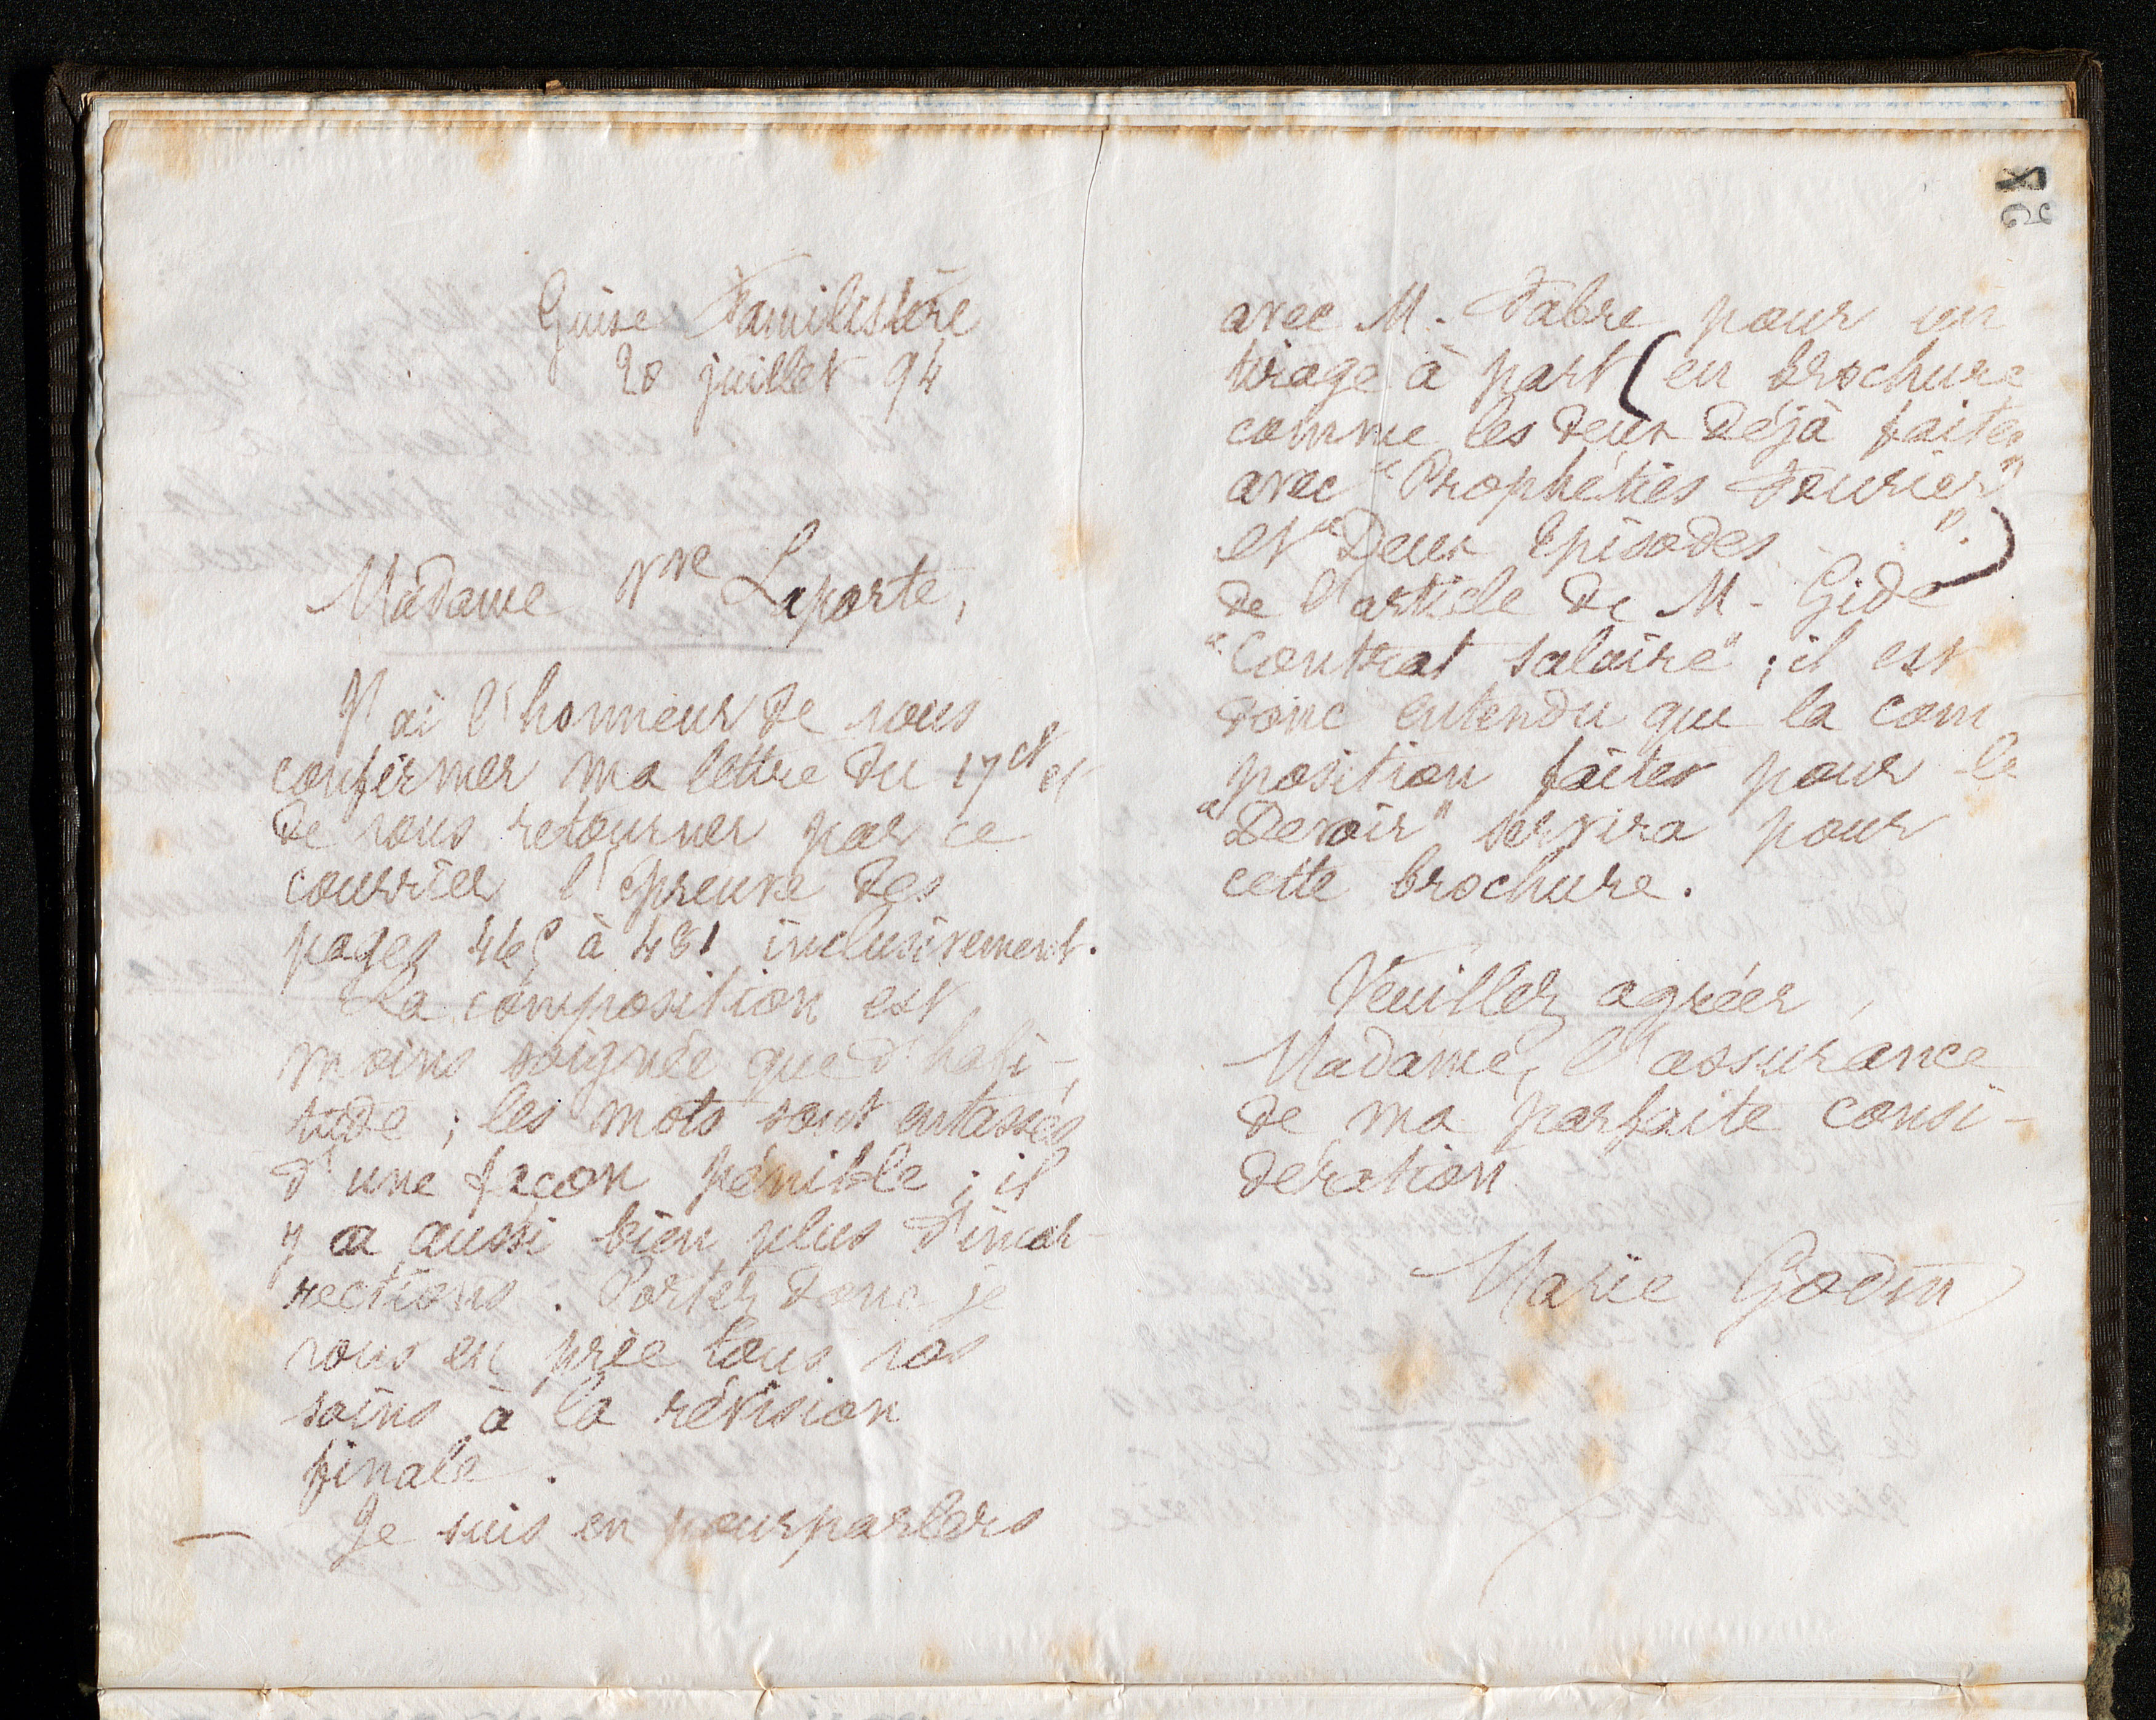 Guise Familistère
20 juillet 94
Madame Vve Laporte,
J'ai l'honneur de vous
confirmer ma lettre du 17 ct et
de vous retourner par ce
courrier l'épreuve des
pages 465 à 481 inclusivement.
La composition est
moins soignée que d'habi-
tude ; les mots sont entassés
d'une façon pénible ; il
y a aussi bien plus d'incor-
rections. Portez donc je
vous en prie tous vos
soins à la révision
finale.
Je suis en pourparlers
28
avec M. Fabre pour un
tirage à part (en brochure
comme les deux déjà faites
avec "Prophéties Fourier"
et "Deux épisodes ".)
de l'article de M. Gide
"Contrat salaire" ; il est
donc entendu que la com
position faites pour le
"Devoir" servira pour
cette brochure.
Veuillez agréer,
Madame, l'assurance
de ma parfaite consi-
dération
Marie Godin